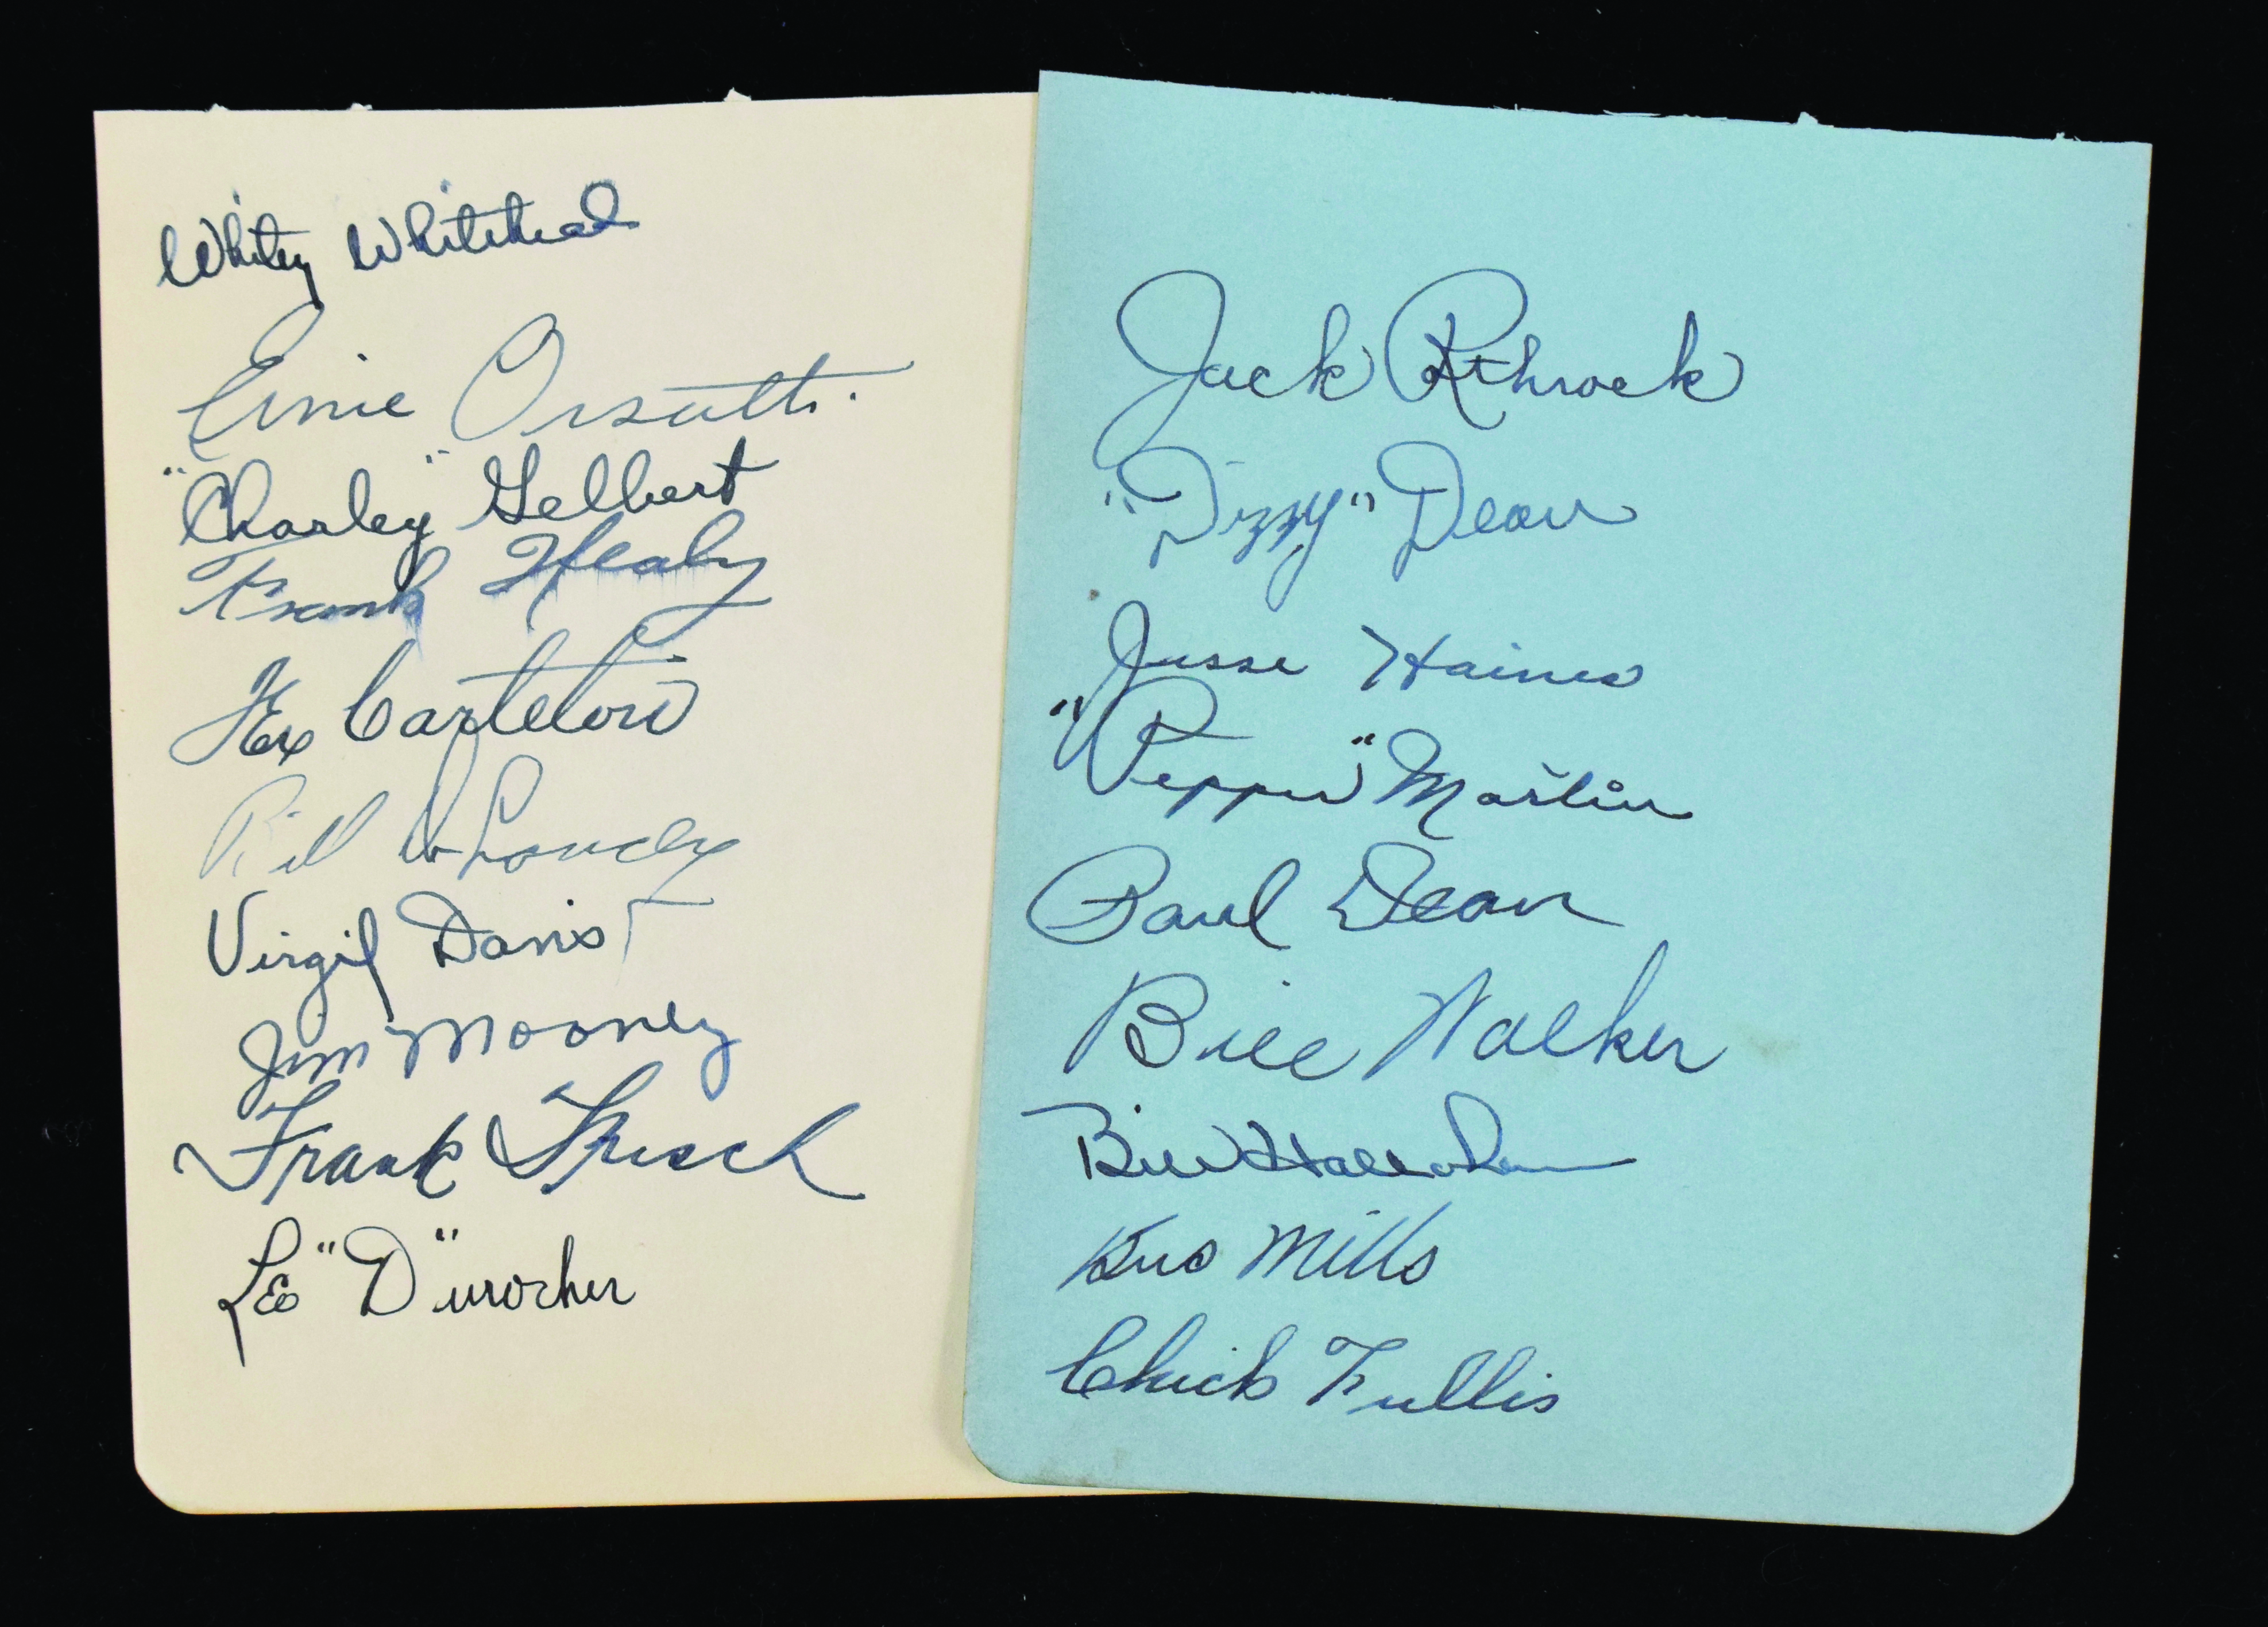 Whitey Whitehead
Ernie Orsatti.
"Charley" Gelbert
Frank Healy
Tex Carleton
Bill DeLancey
Virgil Davis
Jim Mooney
Frank Frisch
Leo "D"urocher
Jack Rothrock
"Dizzy" Dean
Jesse Haines
"Pepper" Martin
Paul Dean
Bill Walker
Bill Hallahan
Bus Mills
Chick Fullis